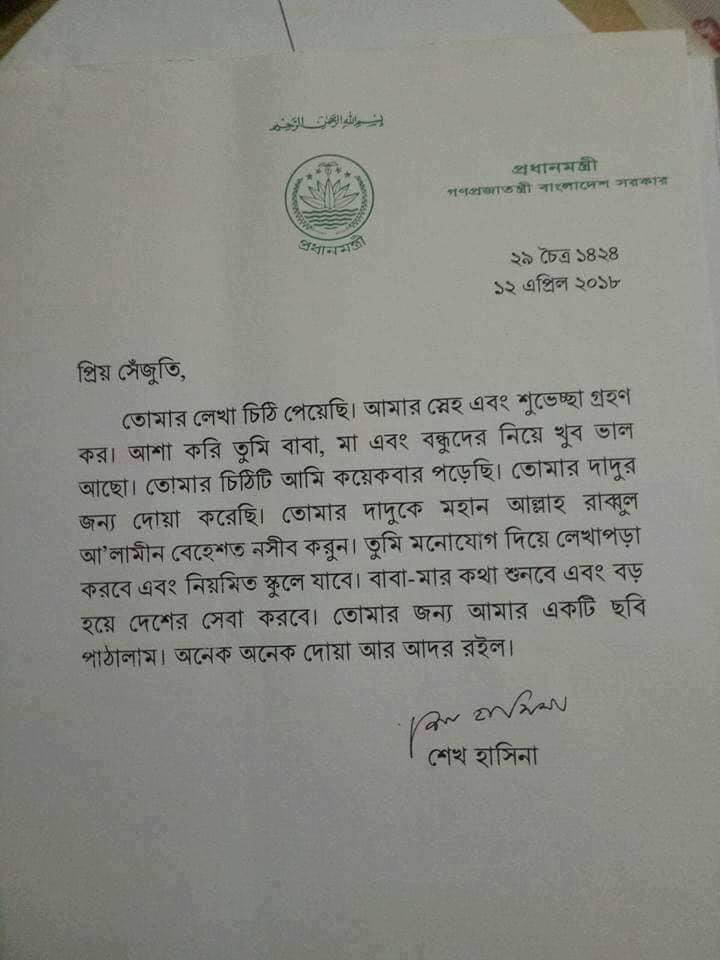 بسم الله الرحمن الرحيم
প্রধানমন্ত্রী
গণপ্রজাতন্ত্রী বাংলাদেশ সরকার
প্রধানমন্ত্রী
২৯ চৈত্র ১৪২৪
১২ এপ্রিল ২০১৮
প্রিয় সেঁজুতি,
তোমার লেখা চিঠি পেয়েছি। আমার স্নেহ এবং শুভেচ্ছা গ্রহণ
কর। আশা করি তুমি বাবা, মা এবং বন্ধুদের নিয়ে খুব ভাল
আছো। তোমার চিঠিটি আমি কয়েকবার পড়েছি। তোমার দাদুর
জন্য দোয়া করেছি। তোমার দাদুকে মহান আল্লাহ রাব্বুল
আ'লামীন বেহেশত নসীব করুন। তুমি মনোযোগ দিয়ে লেখাপড়া
করবে এবং নিয়মিত স্কুলে যাবে। বাবা-মার কথা শুনবে এবং বড়
হয়ে দেশের সেবা করবে। তোমার জন্য আমার একটি ছবি
পাঠালাম। অনেক অনেক দোয়া আর আদর রইল।
শেখ হাসিনা
শেখ হাসিনা